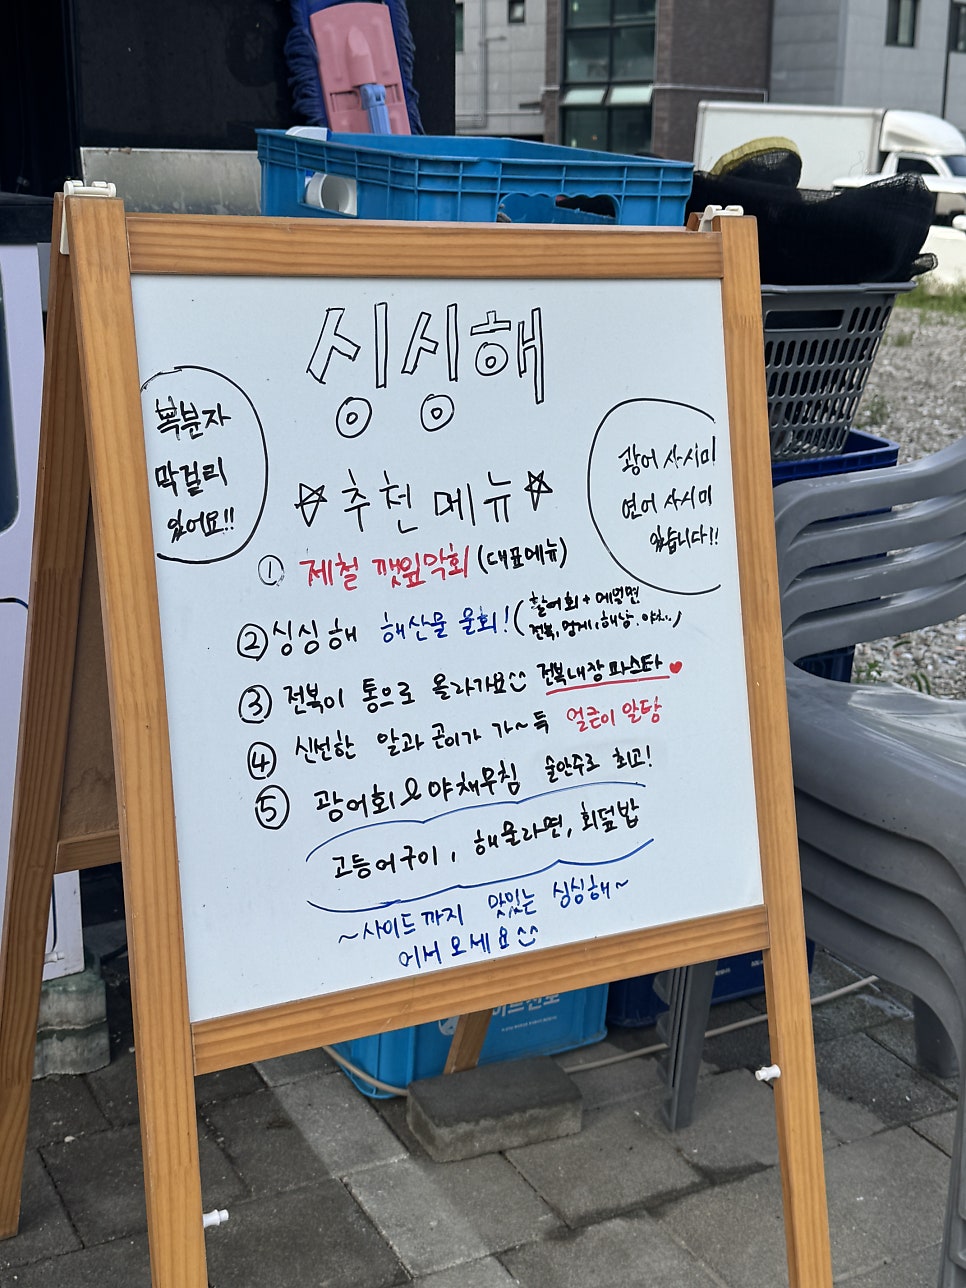 싱싱해
복분자
막걸리
있어요!!
광어 사시미
연어 사시미
있습니다!!
☆추천메뉴☆
① 제철 깻잎막회 (대표메뉴)
② 싱싱해 해산물 물회! (활어회 + 메밀면
전복, 멍게, 해삼, 야채..)
③ 전복이 통으로 올라가요^^ 전복내장파스타 ♥
④ 신선한 알과 곤이가 가~득 얼큰이 알탕
⑤ 광어회&야채무침 술안주로 최고!
고등어구이, 해물라면, 회덮밥
~사이드까지 맛있는 싱싱해~
어서오세요^^